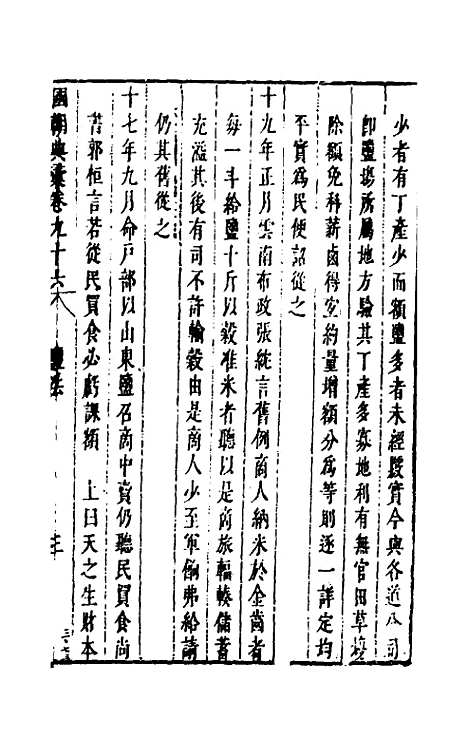 少者有丁產少而額鹽多者未經覈實今與各道
即鹽場所屬地方驗其丁產多寡地利有無官田草場
除額免科薪鹵得宜約量增額分為等則逐一詳定均
平實為民便詔從之
十九年正月雲南布政張統言舊例商人納米於金齒者
每一斗給鹽十斤以穀准米者聽以是商旅輻輳儲蓄
充溢其後有司不許輸穀由是商人少至軍餉弗給請
仍其舊從之
十七年九月命戶部以山東鹽召商中賣仍聽民買食尚
書郭恒言若從民買食必虧課額 上曰天之生財本
國朝典彙卷九十六 鹽法